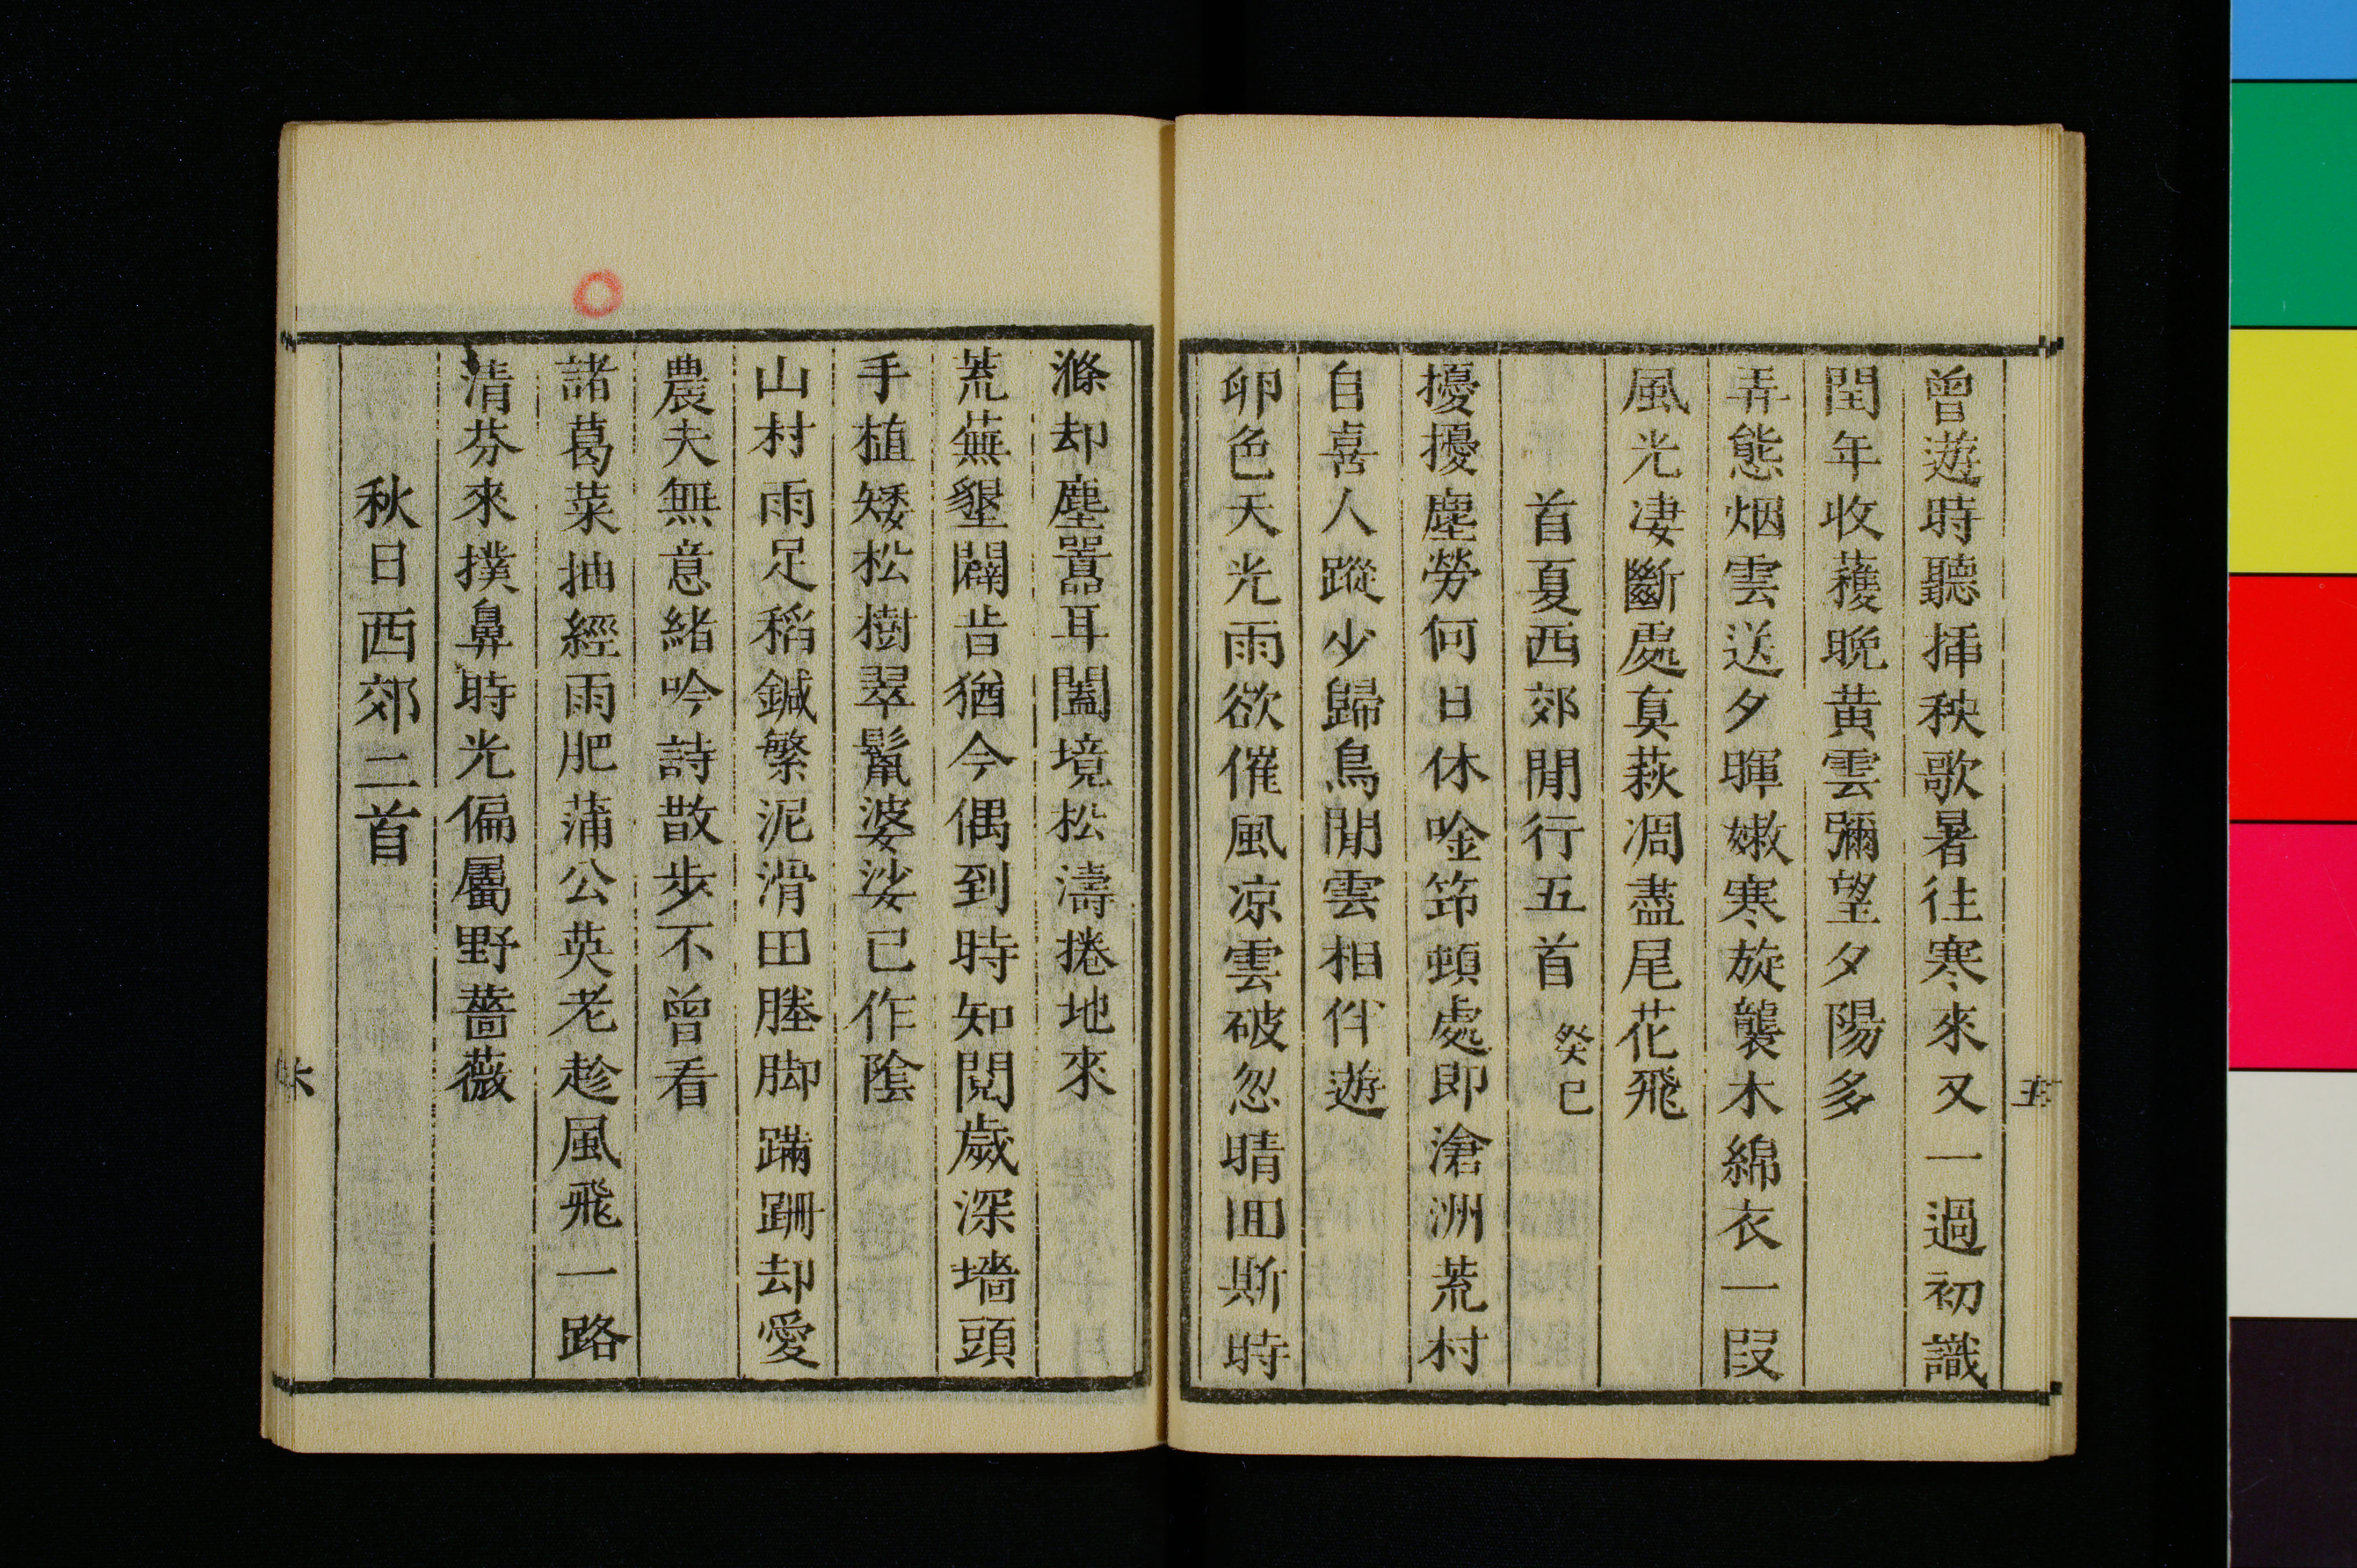 曾遊時聽揷秧歌暑往寒來又一過初識
閏年收穫晩黄雲彌望夕陽多
弄態烟雲送夕暉嫩寒旋襲木綿衣一段
風光凄斷處真萩凋盡尾花飛
首夏西郊閒行五首 癸巳
擾擾塵勞何日休唫筇頓處即滄洲荒村
自喜人蹤少歸鳥閒雲相伴遊
卵色天光雨欲催風凉雲破忽晴囬斯時
滌却塵囂耳闔境松濤捲地來
荒蕪墾闢昔猶今偶到時知閲歲深墻頭
手植矮松樹翠鬣婆娑已作陰
山村雨足稻鍼繁泥滑田塍脚蹣跚却愛
農夫無意緒吟詩散步不曾看
諸葛菜抽經雨肥蒲公英老趁風飛一路
清芬來撲鼻時光偏屬野薔薇
秋日西郊二首